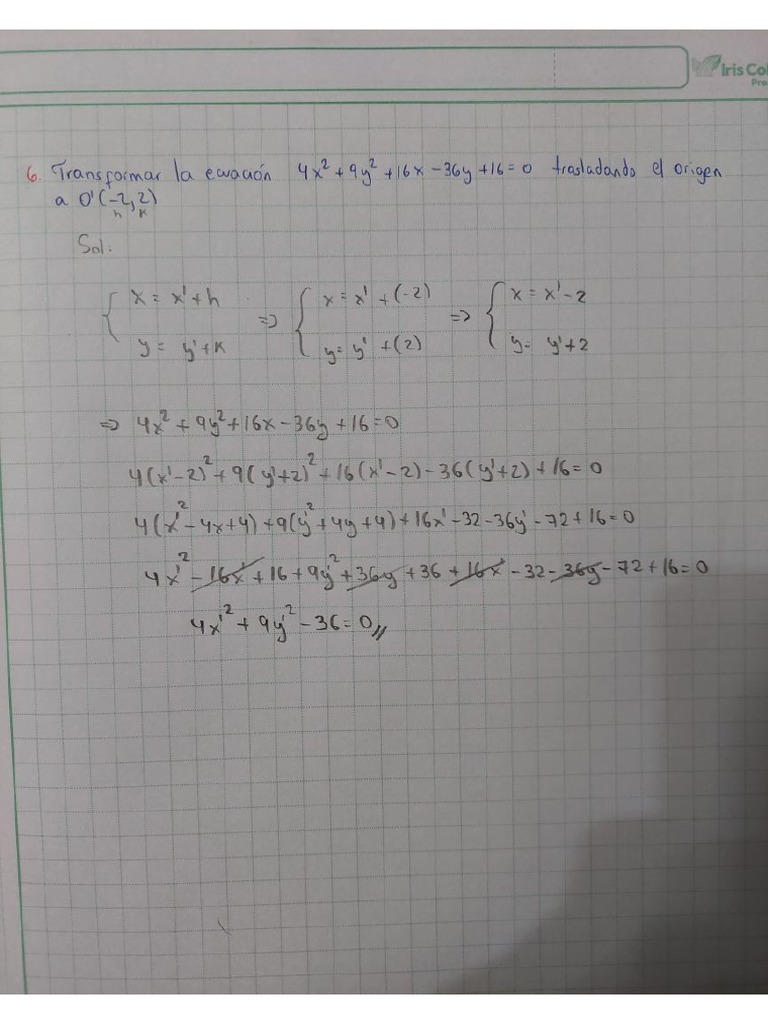 Iris Col
Pro
6. Transformar la ecuación 4x² + 9y² + 16x - 36y + 16 = 0 trasladando el origen
a O'(-2, 2)
h k
Sol:
{ x = x' + h => { x = x' + (-2) => { x = x' - 2
y = y' + k y = y' + (2) y = y' + 2
=> 4x² + 9y² + 16x - 36y + 16 = 0
4(x' - 2)² + 9(y' + 2)² + 16(x' - 2) - 36(y' + 2) + 16 = 0
4(x'² - 4x + 4) + 9(y'² + 4y + 4) + 16x' - 32 - 36y' - 72 + 16 = 0
4x'² - 16x' + 16 + 9y'² + 36y + 36 + 16x - 32 - 36y - 72 + 16 = 0
4x'² + 9y'² - 36 = 0 //